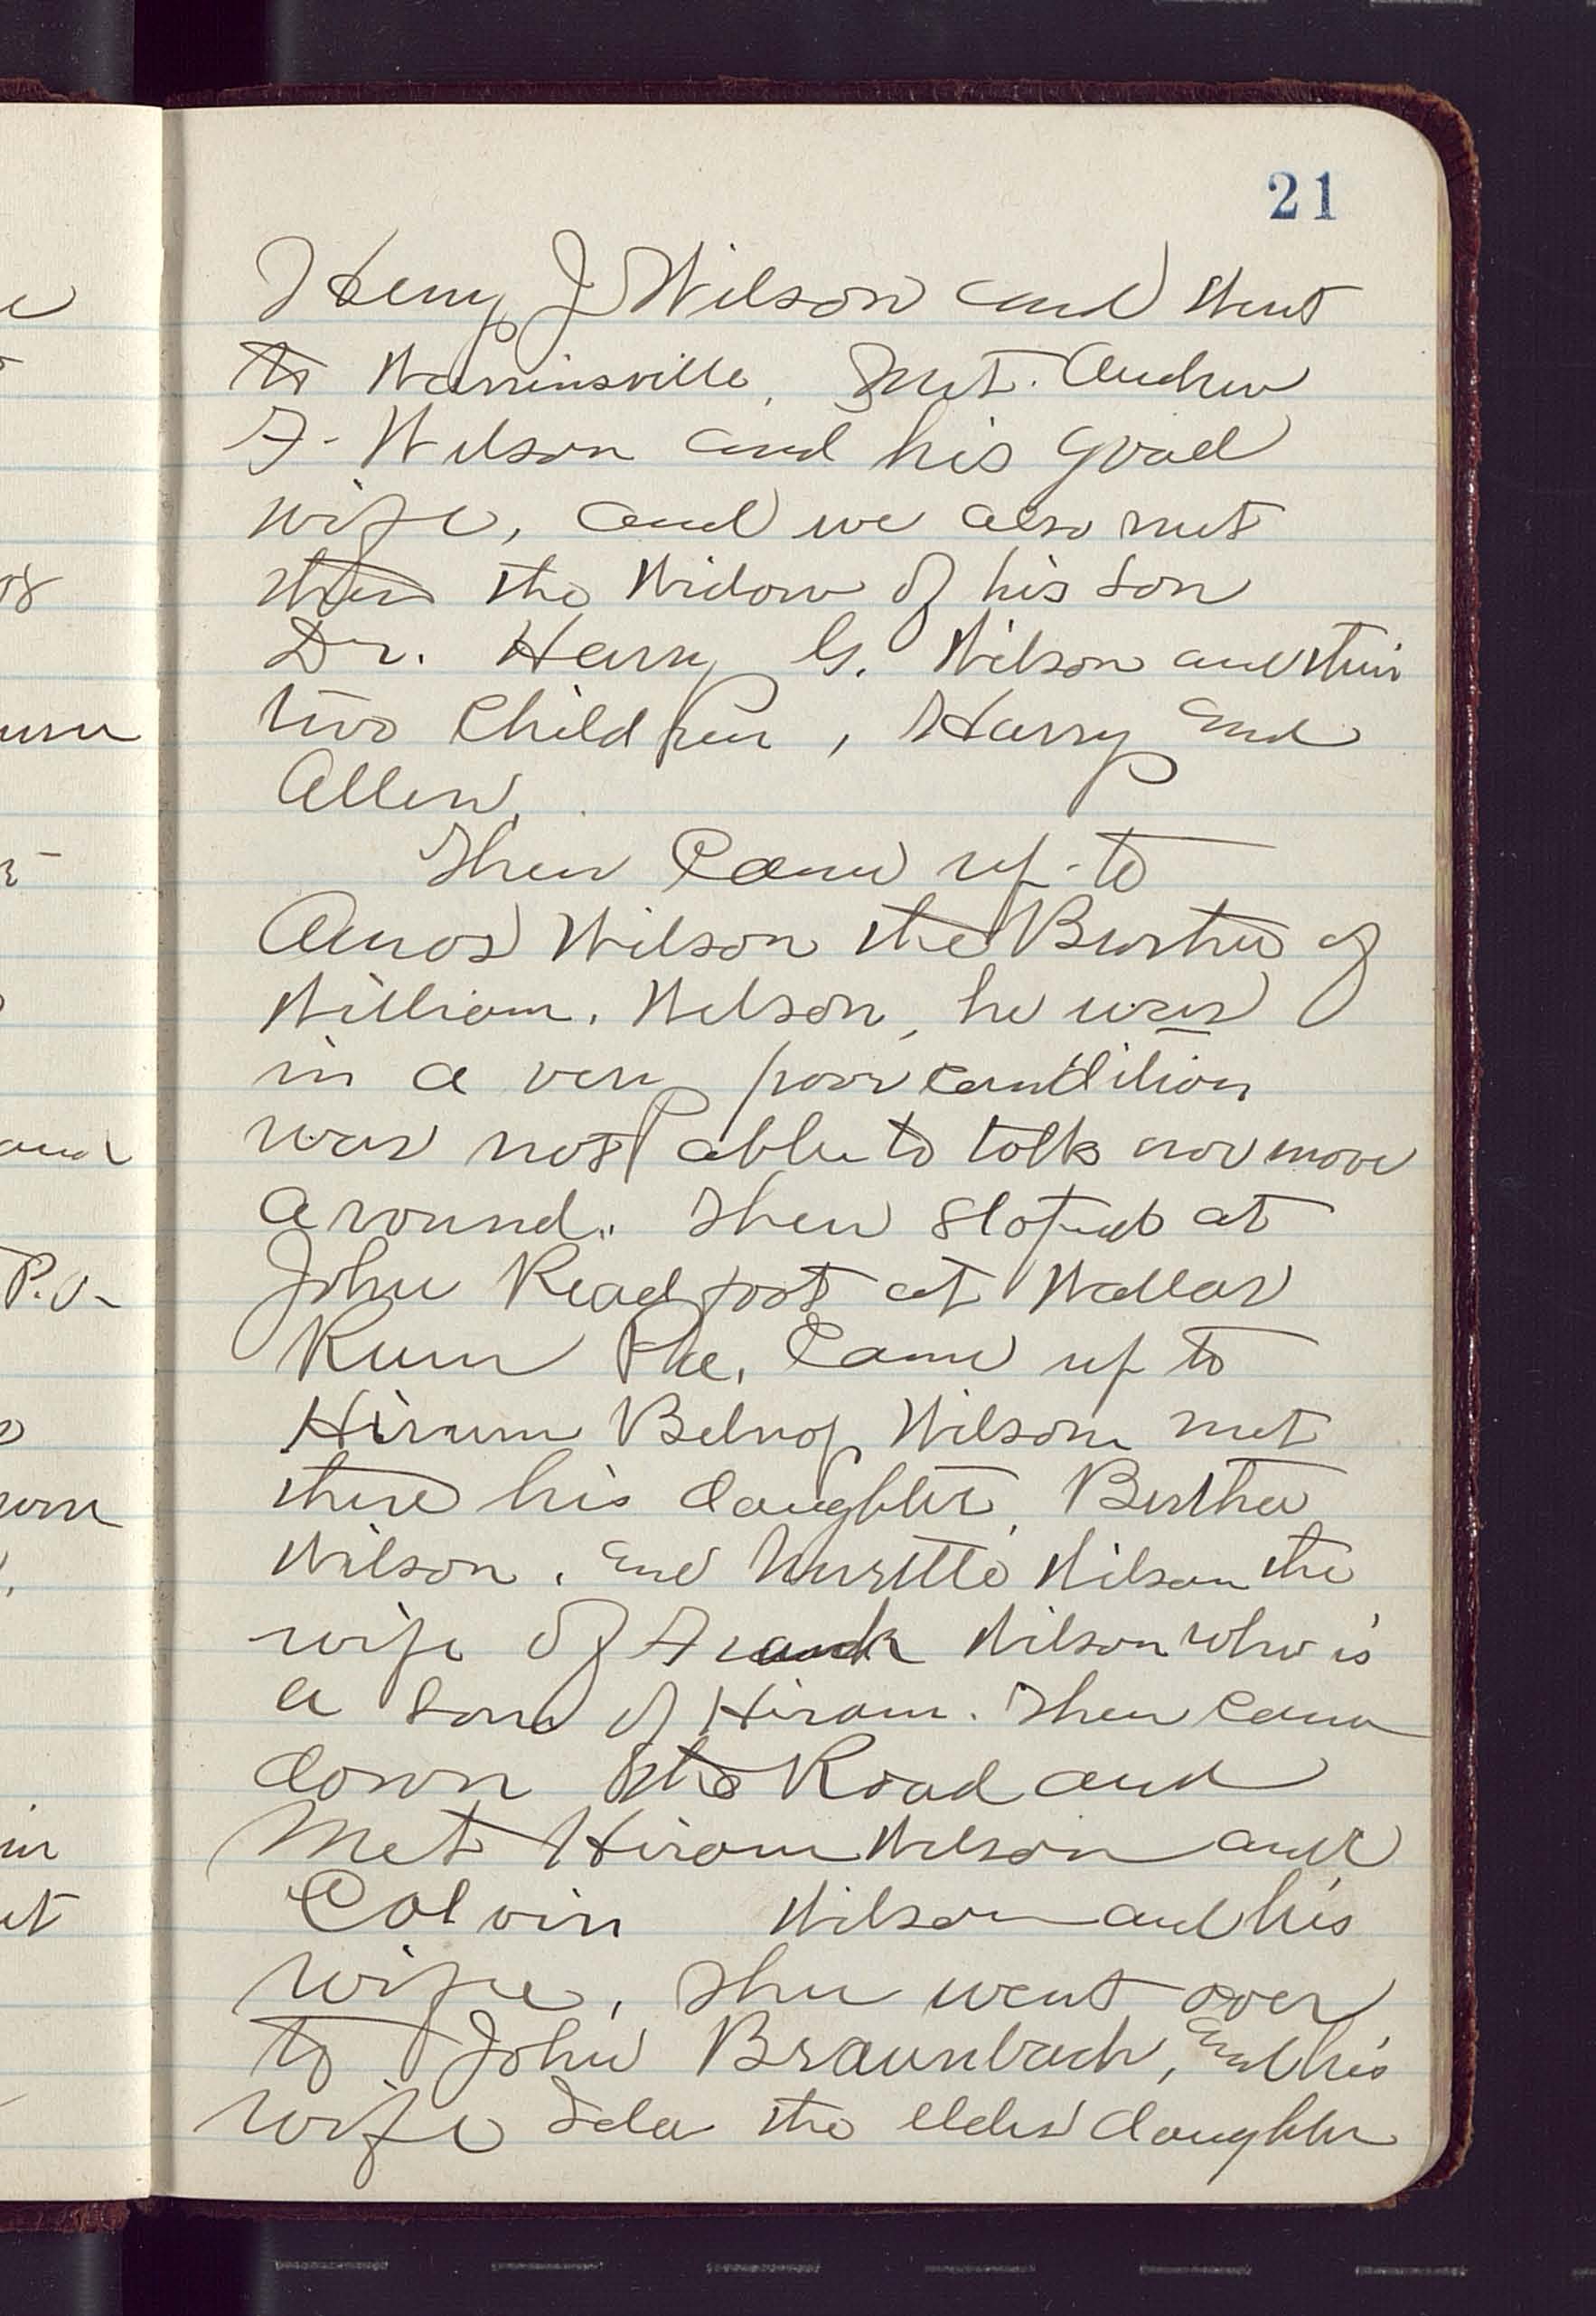 21
Henry J Wilson and went
to Warrinsville, Met. Andrew
F. Wilson and his good
wife, and we also met
there the Widow of his son
Dr. Harry G. Wilson and their
two Children, Harry and
Allen.
Then Came up to
Amos Wilson the Brother of
William. Wilson, he was
in a very poor condition
was not able to talk nor move
around. Then Stoped at
John Readfoot at Wallas
Run Pa. Came up to
Hiram Wilson met
there his daughter, Bertha
Wilson. and Wilson the
wife of Frank Wilson who is
a Son of Hiram. Then Came
down the Road and
Met Hiram Wilson and
Colvin Wilson and his
wife, Then went over
to John Braunbach, and his
wife Ida the elder daughter
P.O.